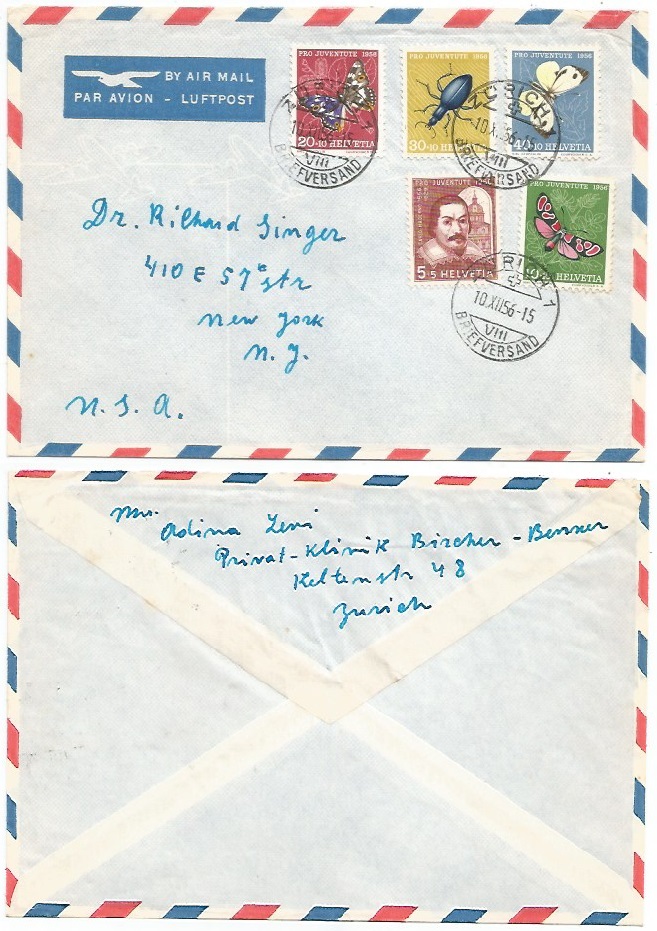 BY AIR MAIL
PAR AVION - LUFTPOST
PRO JUVENTUTE 1956
20+10 HELVETIA
PRO JUVENTUTE 1956
30+10 HELVETIA
PRO JUVENTUTE 1956
40+10 HELVETIA
ZÜRICH 1
VIII
BRIEFVERSAND
ZÜRICH 1
10.XII.56-15
VIII
BRIEFVERSAND
PRO JUVENTUTE 1956
5+5 HELVETIA
PRO JUVENTUTE 1956
10 HELVETIA
ZÜRICH 1
10.XII.56-15
VIII
BRIEFVERSAND
Dr. Richard Singer
410 E 57e str
New York
N. Y.
U. S. A.
Adina Levi
Privat-Klinik Bircher-Benner
Keltenstr 48
Zurich